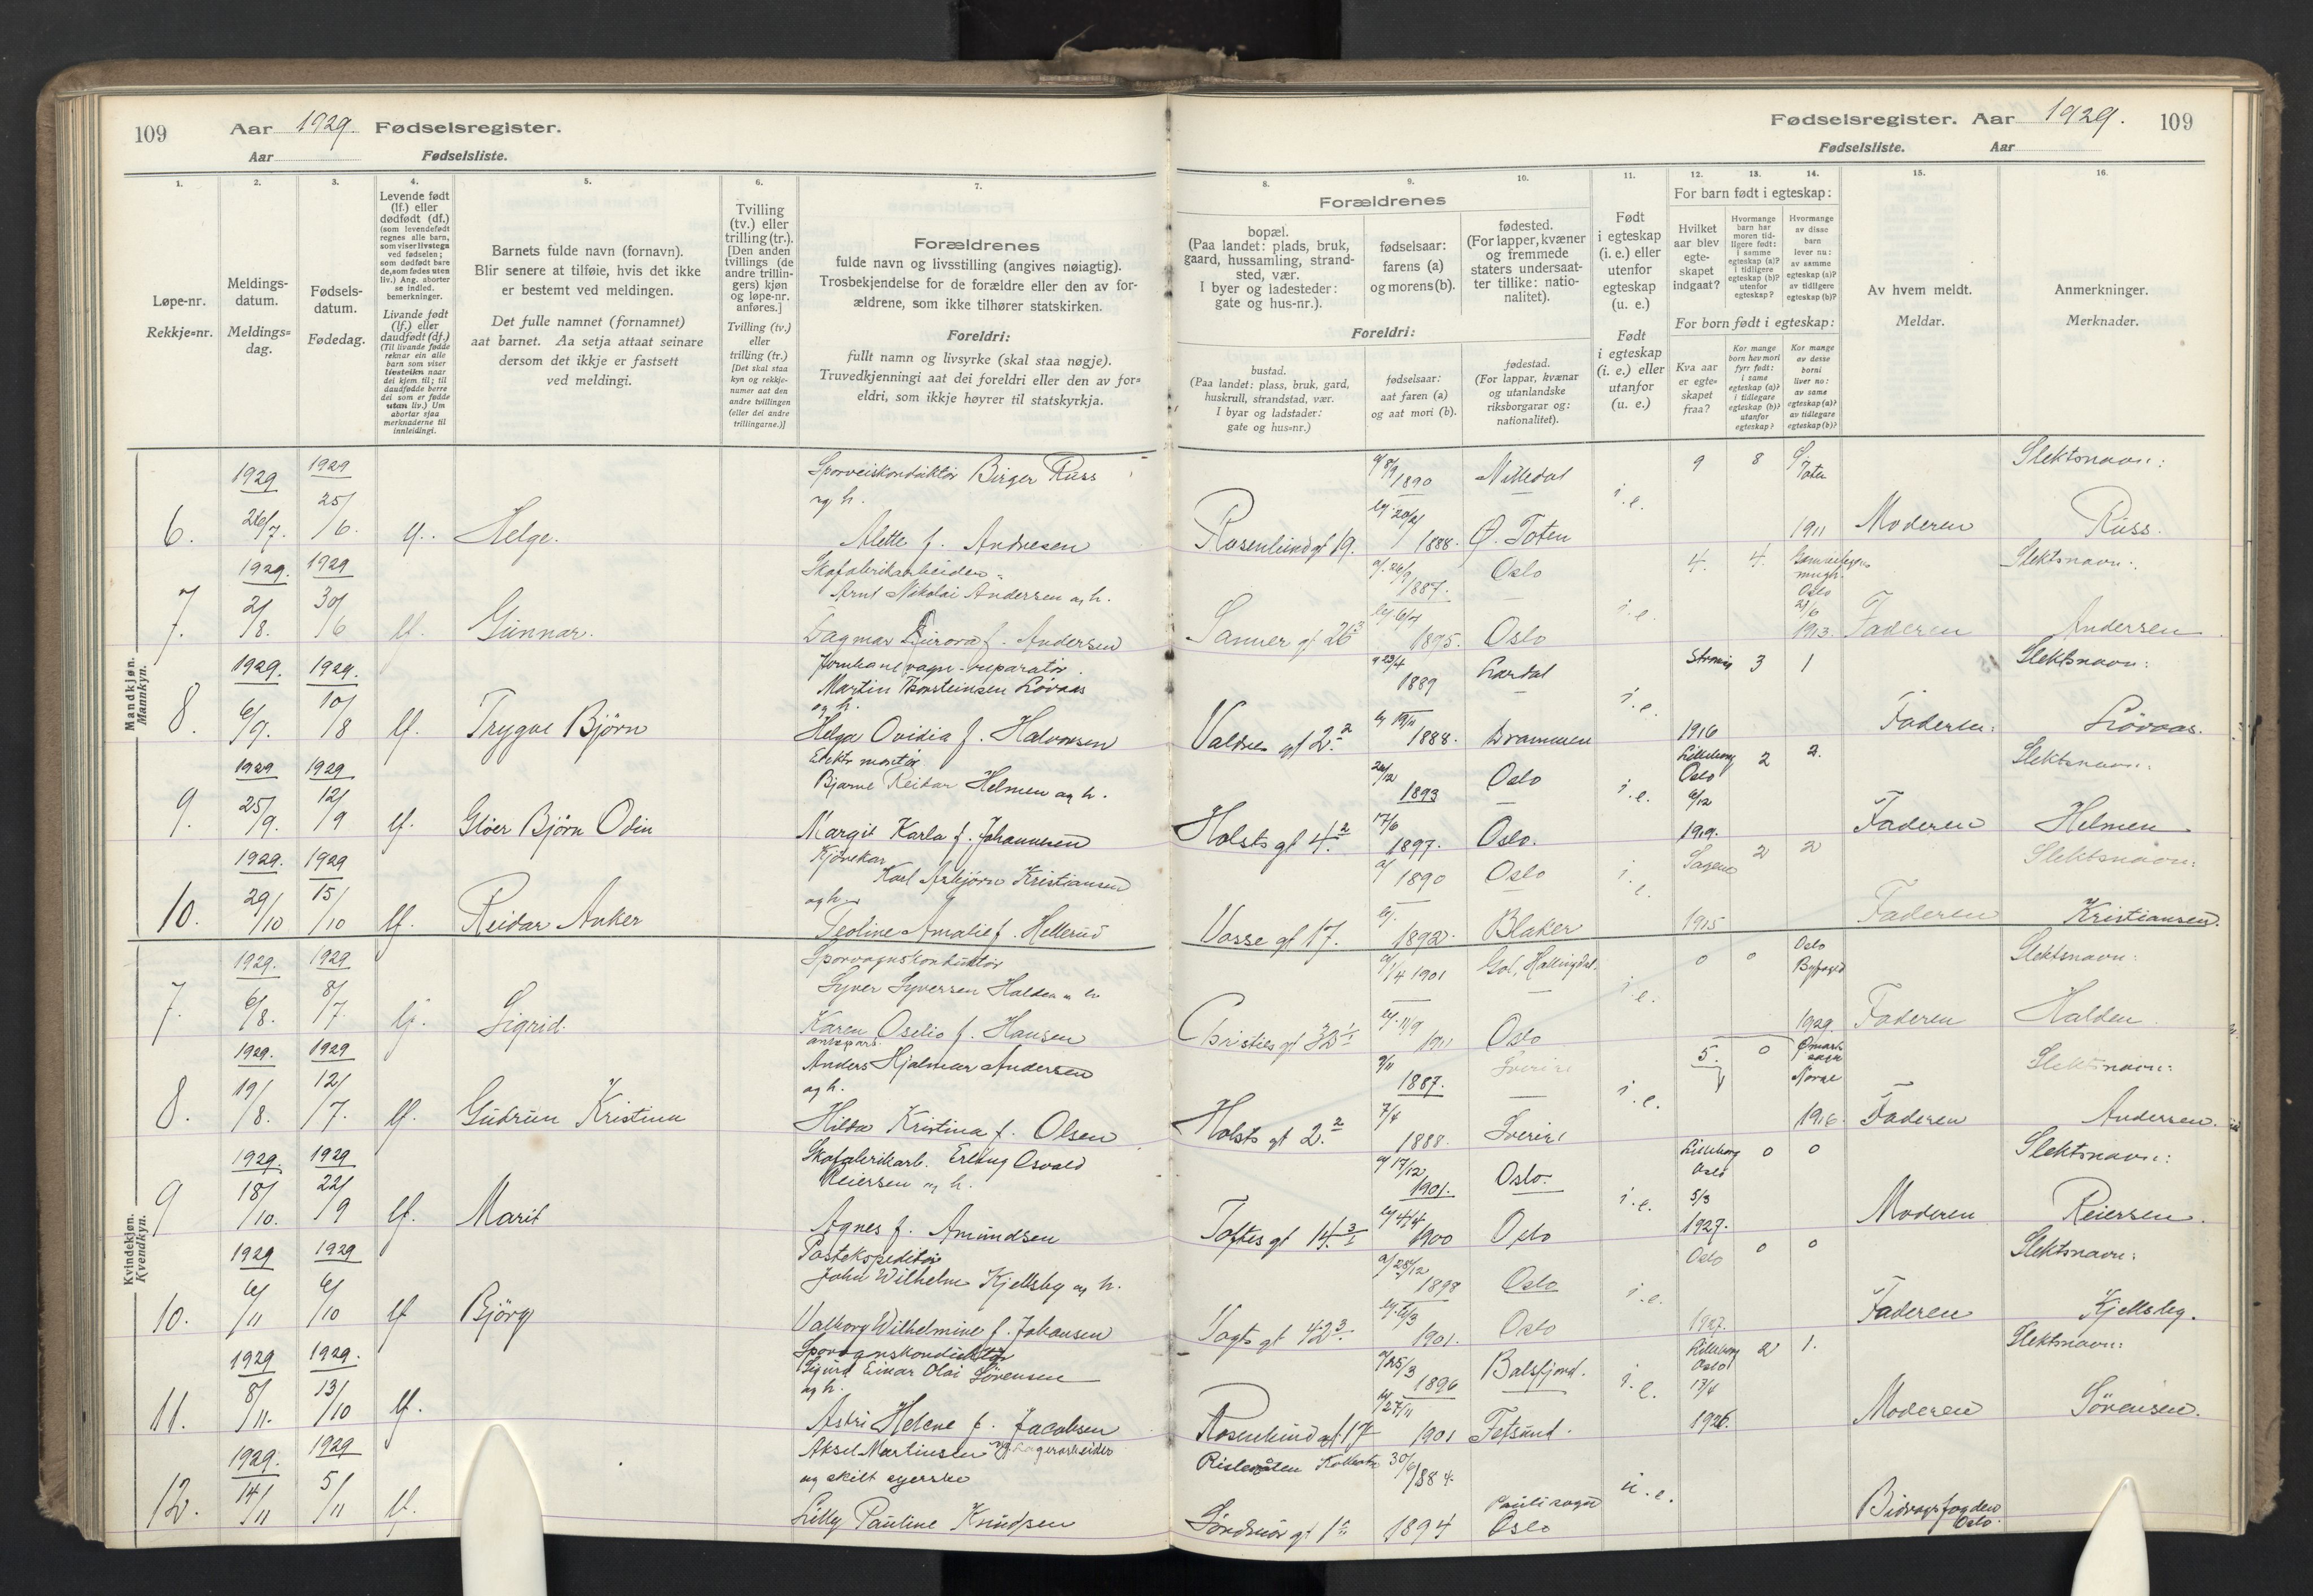 109 Aar 1929. Fødselsregister.
Aar Fødselsliste.
Fødselsregister. Aar 1929. 109
Fødselsliste. Aar
1. 2. 3. 4. 5. 6. 7.
Løpe-nr.
Rekkje=nr.
Meldings-
datum.
Meldings=
dag.
Fødsels-
datum.
Fødedag.
Levende født
(lf.) eller
dødfødt (df.)
(som levendefødt
regnes alle barn,
som viser livstegn
ved fødselen;
som dødfødt bare
de, som fødes uten
liv.) Ang. aborter
se indled.
bemerkninger.
Livande født
(lf.) eller
daudfødt (df.)
(Til livande fødde
reknar ein alle
barn som viser
livsteikn naar
dei kjem til; til
daudfødde berre
dei som er fødde
utan liv.) Um
abortar sjaa
merknaderne til
innleidingi.
Barnets fulde navn (fornavn).
Blir senere at tilføie, hvis det ikke
er bestemt ved meldingen.
Det fulle namnet (fornamnet)
aat barnet. Aa setja attaat seinare
dersom det ikkje er fastsett
ved meldingi.
Tvilling
(tv.) eller
trilling (tr.).
[Den anden
tvillings (de
andre trillin-
gers) kjøn
og løpe-nr.
anføres.]
Tvilling (tv.)
eller
trilling (tr.)
[Det skal staa
kyn og rekkje-
numer aat den
andre tvillingen
(eller dei andre
trillingarne.)]
Forældrenes
fulde navn og livsstilling (angives nøiagtig).
Trosbekjendelse for de forældre eller den av for-
ældrene, som ikke tilhører statskirken.
Foreldri:
fullt namn og livsyrke (skal staa nøgje).
Truvedkjenningi aat dei foreldri eller den av for=
eldri, som ikkje høyrer til statskyrkja.
8. 9. 10. 11. 12. 13. 14. 15. 16.
Forældrenes
bopæl.
(Paa landet: plads, bruk,
gaard, hussamling, strand-
sted, vær.
I byer og ladesteder:
gate og hus-nr.).
fødselsaar:
farens (a)
og morens (b).
fødested.
(For lapper, kvæner
og fremmede
staters undersaat-
ter tillike: natio-
nalitet).
Foreldri:
bustad.
(Paa landet: plass, bruk, gard,
huskrull, strandstad, vær.
I byar og ladstader:
gate og hus=nr.)
fødselsaar:
aat faren (a)
og aat mori (b).
fødestad.
(For lappar, kvænar
og utanlandske
riksborgarar og:
nationalitet).
Født
i egteskap
(i. e.) eller
utenfor
egteskap
(u. e.)
Født
i egteskap
(i. e.) eller
utanfor
(u. e.)
For barn født i egteskap:
Hvilket
aar blev
egte-
skapet
indgaat?
Hvormange
barn har
moren tid-
ligere født:
i samme
egteskap (a)?
i tidligere
egteskap (b)?
utenfor
egteskap?
Hvormange
av disse
barn
lever nu:
av samme
egteskap (a)?
av tidligere
egteskap (b)?
For born født i egteskap:
Kva aar
er egte=
skapet
fraa?
Kor mange
born hev mori
fyrr født:
i same
egteskap (a)?
i tidlegare
egteskap (b)?
utanfor
egteskap?
Kor mange
av desse
borni
liver no:
av same
egteskap (a)?
av tidlegare
egteskap (b)?
Av hvem meldt.
Meldar.
Anmerkninger.
Merknader.
Mandkjøn.
Mannkyn.
6. 1929 26/7. 1929 25/6. Helge.
Sporveiskonduktør Birger Russ
og h.
Alette f. Andresen
Rosenlundgt 19. 1890 Nittedal
1888. Ø. Toten i.e. 9 8 Toten 1911 Moderen Slektsnavn: Russ.
7. 1929. 2/8. 1929 30/6 lf. Gunnar.
Skofabrikarbeider
Arnt Nikolai Andersen og h.
Dagmar Aurora f. Andersen
Sanner gt 26 1887. Oslo
1895. Oslo i.e. 4. 4. Oslo 1913. Faderen Slektsnavn: Andersen
8. 1929. 6/9. 1929. 10/8 lf. Trygve Björn
Jernbanevogn-reparatør
Martin Thorsteinsen Lövaas
og h.
Helga Ovidia f. Halvorsen
Valdres gt 2. 23/4 1889 Lardal
19/11 1888. Drammen i.e. 3 1 1916 Faderen. Slektsnavn: Lövaas.
9. 1929 25/9. 1929 12/9 lf. Glöer Björn Odin
Elektr montør
Bjarne Reidar Helmen og h.
Margit Karla f. Johannesen
Holsts gt 4. 1893 Oslo
17/6 1897. Oslo. i.e. Lilleborg Oslo 6/12 1919. 2 2. Faderen Slektsnavn: Helmen
10. 1929. 29/10 1929 15/10 lf. Reidar Anker
Kjörekar
Karl Asbjörn Kristiansen
og h.
Teoline Amalie f. Hellerud
Vosse gt 17. 1890 Oslo
1892. Blaker i.e. Sagene 1915 2 2 Faderen Slektsnavn: Kristiansen.
Kvindekjøn.
Kvendkyn.
7. 1929. 6/8. 1929 8/7. Sigrid.
Sporvognskonduktør
Syver Syversen Halden og h.
Karen Oselio f. Hansen
Christies gt 32 1/4 1901 Gol, Hallingdal.
11/9 1911 Oslo i.e. 0 0 Oslo Byfoged 1929. Faderen Slektsnavn: Halden
8. 1929. 19/8. 1929 12/7. lf. Gudrun Kristina
Anders Hjalmar Andersen
og h.
Hilda Kristina f. Olsen
Holsts gt 2. 9/11 1887. Sverige
7/4 1888. Sverige i.e. 5. 0 Norge 1916. Faderen Slektsnavn: Andersen.
9 1929. 18/10. 1929 22/9 lf. Marit
Skofabrikarb. Erling Osvald
Reiersen og h.
Agnes f. Amundsen
Toftes gt 14. 17/12 1901. Oslo.
1900 Oslo i.e. Lilleborg Oslo 5/3 1927. 0 0 Moderen Slektsnavn: Reiersen.
10. 1929 6/11 1929 6/10 lf Björg
Postekspeditör
John Wilhelm Kjellsby og h.
Valborg Wilhelmine f. Johansen
Vogts gt 42 28/12 1898 Oslo
1901. Oslo i.e. Oslo 1927. 0 0 Faderen Slektsnavn: Kjellsby.
11. 1929 8/11. 1929. 13/10 lf.
Sporvognskonduktör
Sigurd Einar Olai Sörensen
og h.
Astri Helene f. Jacobsen
Rosenlund gt 17 25/3 1896 Balsfjord.
27/11 1901 Fetsund. i.e. Lilleborg Oslo 17/4 1926. 2 1. Moderen Slektsnavn: Sörensen.
12. 1929. 14/11 1929 5/11 lf.
Aksel Martinsen lagerarbeider
og skilt syerske
Lilly Pauline Knudsen
30/6 1884.
1894 Pauli sogn Oslo u.e. Bidragsfogden Oslo.